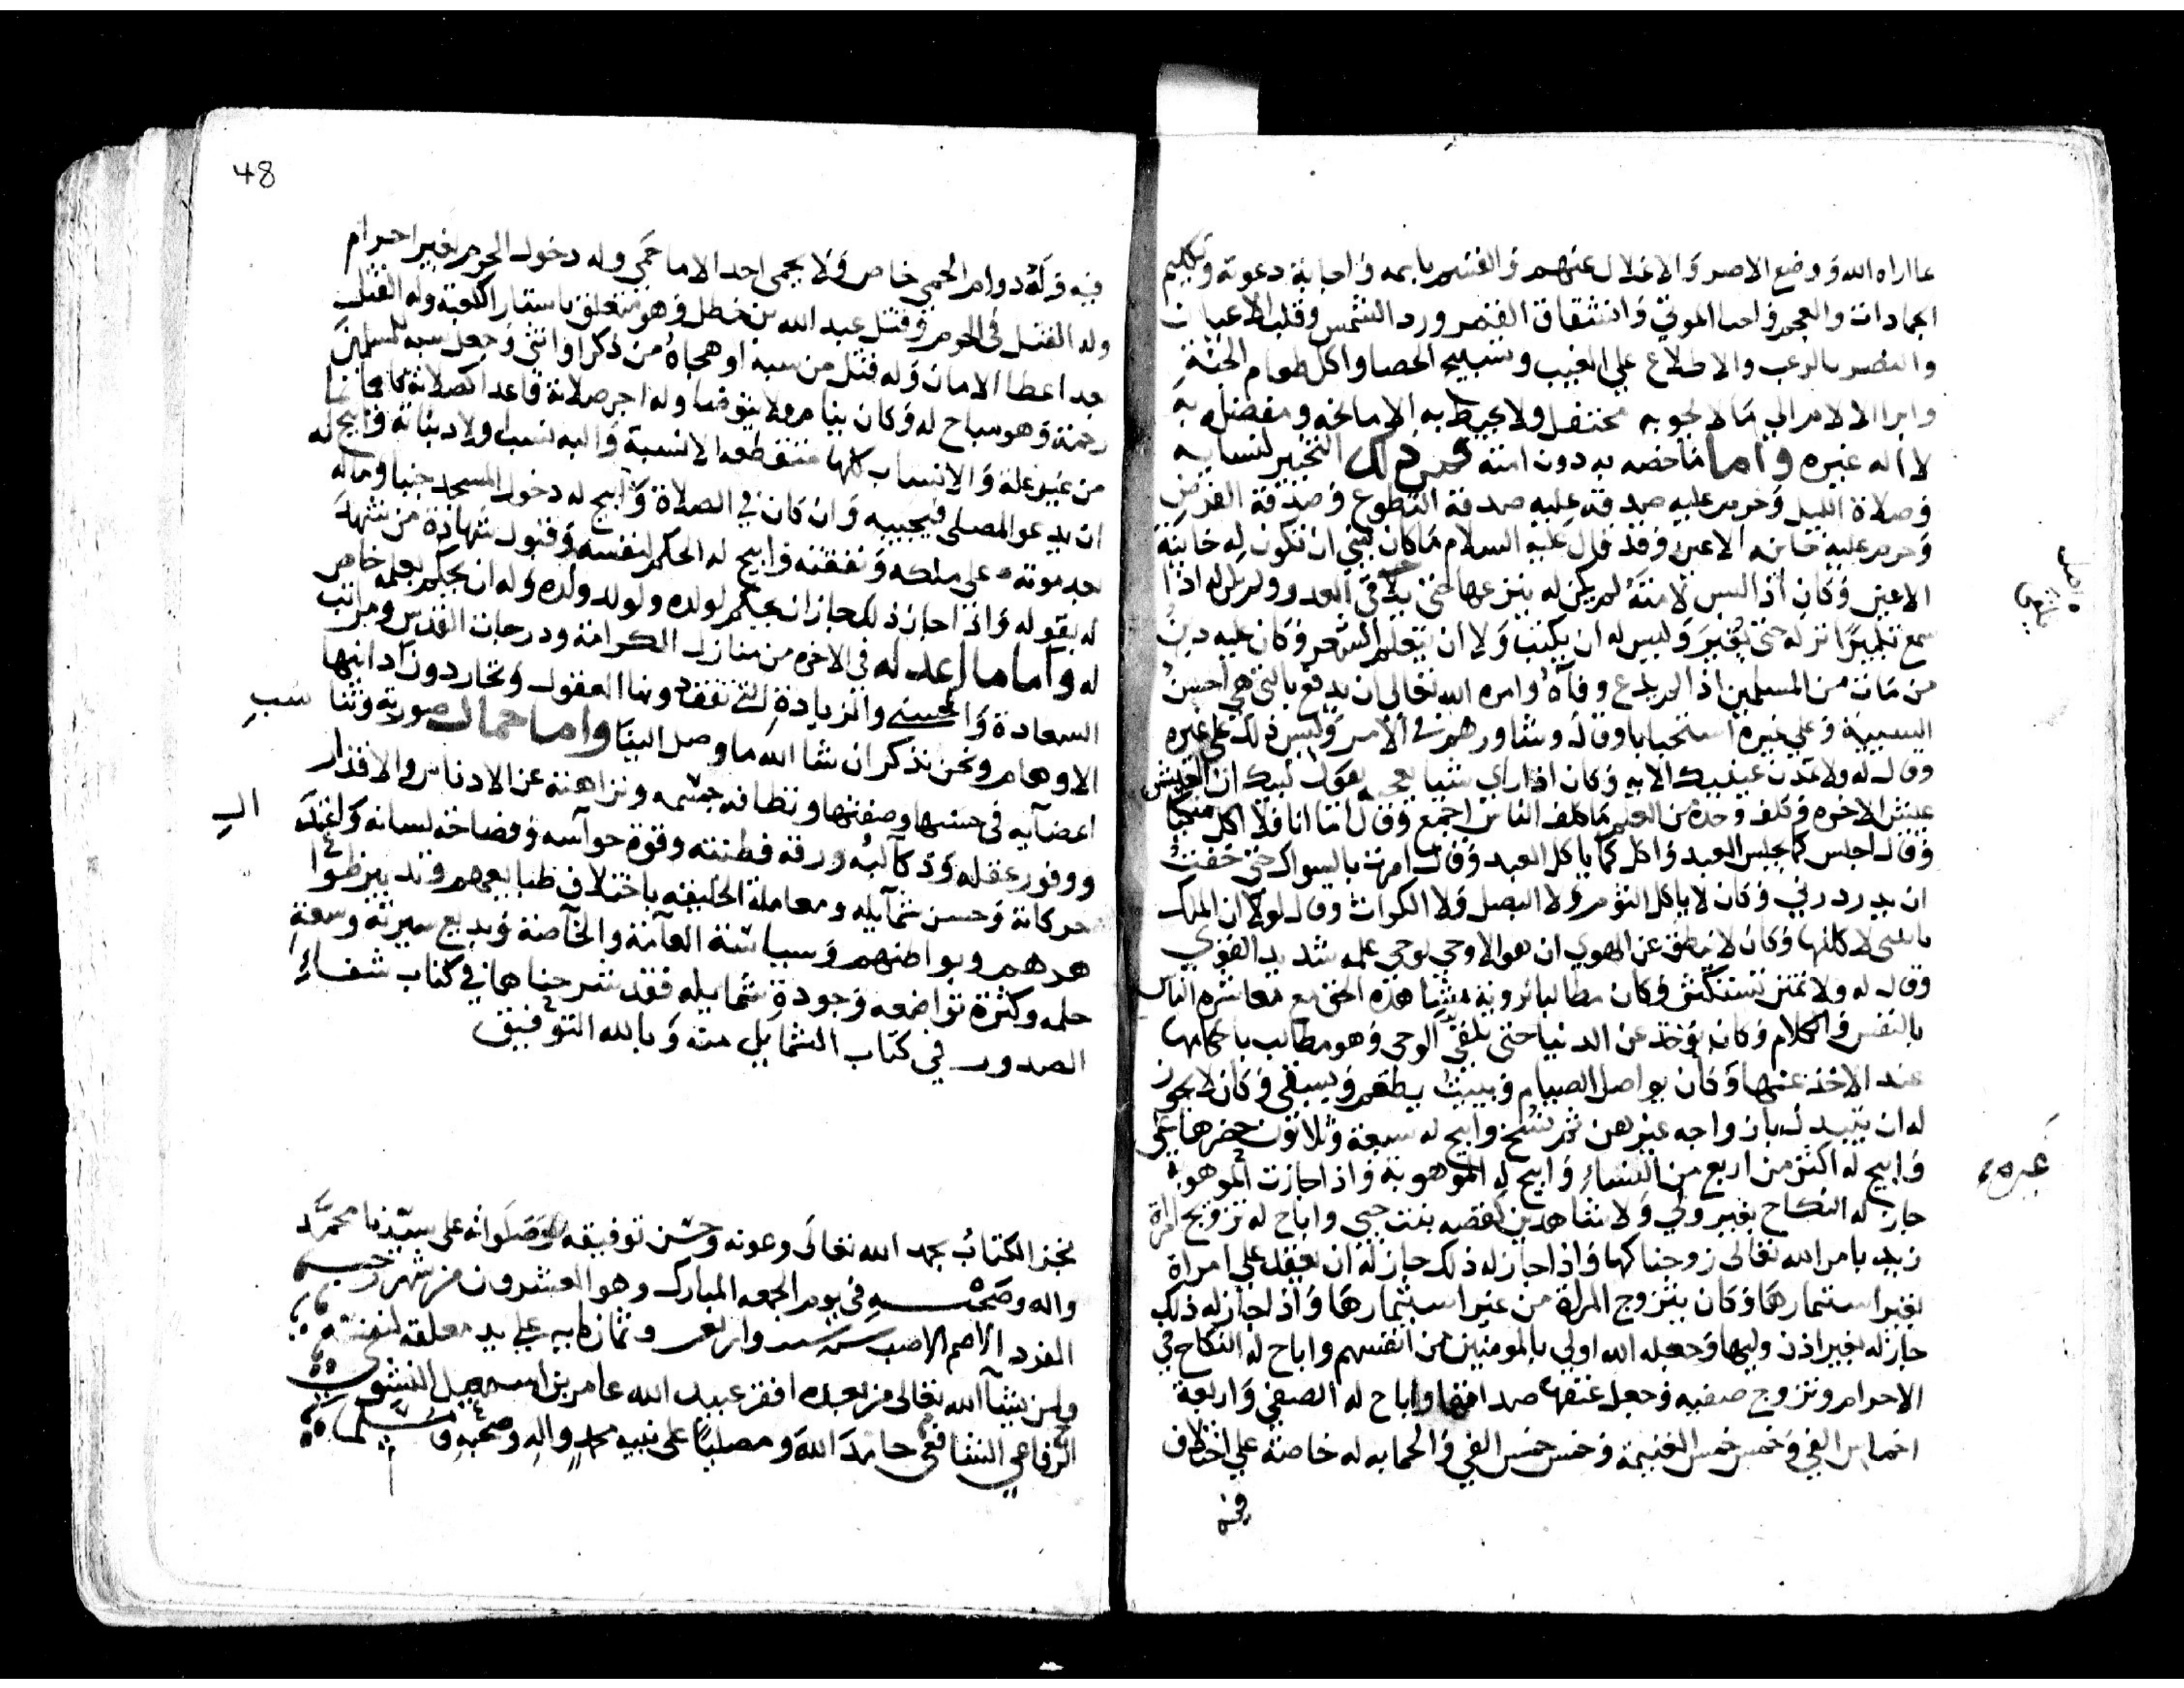 عااراه الله ووضع الاصر والاغلال عنهم والقسم باسمه واجابة دعوته وتكليم
الجمادات والعجم واحيا الموتي وانشقاق القمر ورد الشمس وقلب الاعيان
والنصر بالرعب والاطلاع علي الغيب وتسبيح الحصا واكل طعام الجنة
وابرا الالام الي ما لا يحويه محتفل ولا يحيط به الا مانحه ومفضله به
لا اله غيره واما ما خصه به دون امته فمن ذلك التخيير لنسايه
وصلاة الليل وحرم عليه صدقة عليه صدقة التطوع وصدقة الفرض
وحرم عليه خاينه الاعين وقد قال عليه السلام ما كان لنبي ان تكون له خاينة
الاعين وكان اذا لبس لامته لم يكن له ينزعها حتى يلاقي العدو ولم يكن له اذا
سمع تكبيرا نزله حتي يغير وليس له ان يكتب ولا ان يتعلم الشعر وكان عليه دين
من مات من المسلمين اذا لم يدع وفاه وامره الله تعالي ان يدفع بالتي هي احسن
السيية وعلي غيره استحبابا وقال وشاورهم في الامر وليس ذلك علي غيره
وقال له ولا تمدن عينيك الايه وكان اذا راي شييا يعجبه يقول لبيك ان العيش
عيش الاخره وكلف وحده من العلم ما كلف الناس اجمع وقال اما انا فلا اكل متكيا
وقال اجلس كما يجلس العبد واكل كما ياكل العبد وقال امرت بالسواك حتى خفت
ان يدردرني وكان لا ياكل الثوم ولا البصل ولا الكراث وقال لولا ان الملك
ياتيني لاكلتها وكان لا ينطق عن الهوي ان هو الا وحي يوحي علمه شديد القوي
وقال له ولا تمنن تستكثر وكان مطالبا بروية مشاهدة الحق مع معاشرة الناس
بالنفس والكلام وكان يوخذ عن الدنيا حتى تلقي الوحي وهو مطالب باحكامها
عند الاخذ عنها وكان يواصل الصيام ويبيت يطعم ويسقي وكان لا يجوز
له ان يتبدل بازواجه غيرهن ثم نسخ وابيح له سبعة وثلاثون حضرها علي
وابيح له اكثر من اربع من النساء وابيح له الموهوبة واذا جازت الموهوبة
جاز له النكاح بغير ولي ولا شاهدين لقصة بنت حيي واباح له تزويج امراة
زيد بامر الله تعالى زوجناكها واذا جاز له ذلك جاز له ان يعقد علي امراة
بغير استيمارها وكان يتزوج المراة من غير استيمارها واذا جاز له ذلك
جاز له بغير اذن وليها وجعله الله اولي بالمومنين من انفسهم واباح له النكاح في
الاحرام وتزوج صفيه وجعل عتقها صداقها واباح له الصفي واربعة
اخماس الفي وخمس خمس الغنيمة وخمس خمس الفي والحمايه له خاصة علي اختلاف
فيه
غيره
48
فيه وله دوام الحمي خاص ولا يحمي احد الا ما حمي وله دخول الحرم بغير احرام
وله القتل في الحرم وقتل عبد الله بن خطل وهو متعلق باستار الكعبة وله القتل
بعد اعطا الامان وله قتل من سبه او هجاه من ذكر او انثي وجعل سبه للمسلمين
رحمة وهو مباح له وكان ينام ولا يتوضا وله اجر صلاته قاعد الصلاته قايما
من غير علة والانساب كلها منقطعه الا نسبه واليه نسب اولاد بناته وابيح له
ان يدعو المصلي فيجيبه وان كان في الصلاة وابيح له دخول المسجد جنبا وماله
بعد موته علي ملكه ونفقته وابيح له الحكم لنفسه وقبول شهادة من شهد
له بقوله واذا جاز ذلك جاز ان يحكم لولده ولولد ولده وله ان يحكم بعلمه خاص
له واما ما اعد له في الاخره من منازل الكرامة ودرجات القدس ومراتب
السعادة والحسني والزيادة التي تقف دونها العقول وتحار دون ادانيها
الاوهام ونحن نذكر ان شا الله ما وصل الينا واما جمال صورته وتناسب
اعضايه في حسنها وصفتها ونظافه جسمه ونزاهته عن الادناس والاقذار
ووفور عقله وذكا لبه ورقة فطنته وقوة حواسه وفصاحة لسانه واعتدال
حركاته وحسن شمايله ومعاملة الخليقه باختلاف طبايعهم وتدبير ظوا
هرهم وبواطنهم وسياسة العامة والخاصة وبديع سيرته وسعة
حلمه وكثرة تواضعه وجودة شمايله فقد شرحناها في كتاب شفاء
الصدور في كتاب الشمايل منه وبالله التوفيق
نجز الكتاب بحمد الله تعالى وعونه وحسن توفيقه وصلواته على سيدنا محمد
واله وصحبه في يوم الجمعه المبارك وهو العشرون من شهر رجب
الفرد الاصم الاصب سنة ست واربعين وثمانمايه علي يد معلقه لنفسه
ولمن شآ الله تعالى من بعده افقر عبيد الله عامر بن اسمعيل
الرفاعي الشافعي حامد الله ومصليا على نبيه محمد واله وصحبه ومسلما